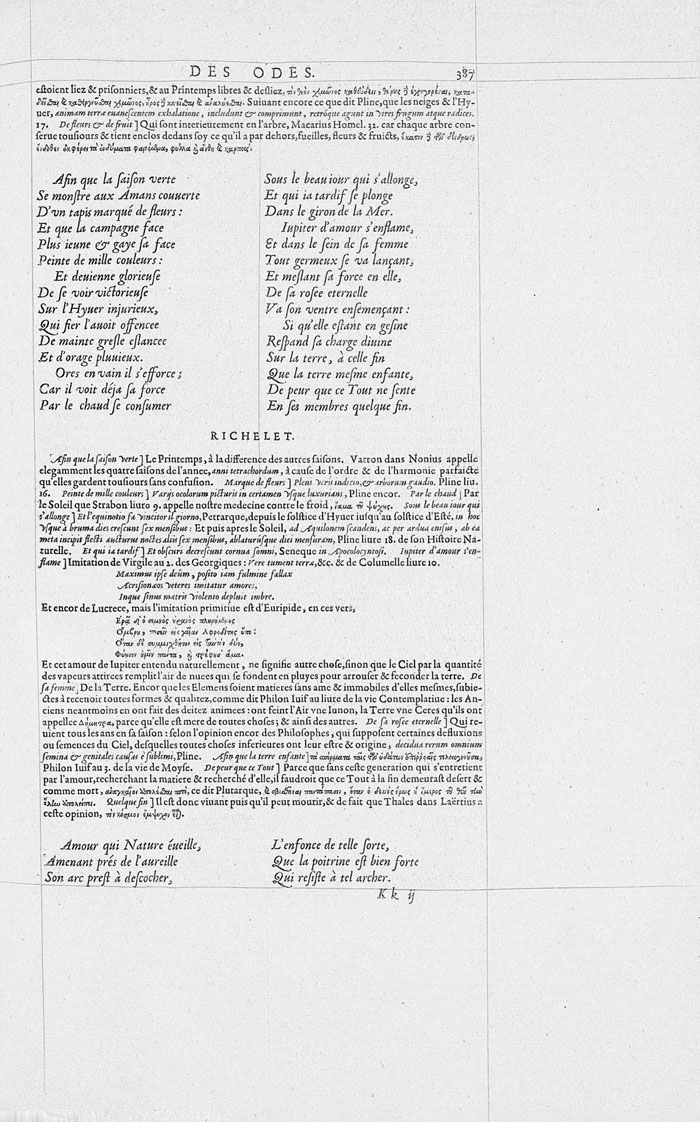 DES ODES. 387
estoient liez & prisonniers, & au Printemps libres & desliez,
Suiuant encore ce que dit Pline, que les neiges & l'Hy-
uer, animam terræ euanescentem exhalatione, includunt & comprimunt, retróque agunt in vires frugum atque radices.
17. De fleurs & de fruit ] Qui sont interieurement en l'arbre, Macarius Homel. 32. car chaque arbre con-
serue tousiours & tient enclos dedans soy ce qu'il a par dehors, fueilles, fleurs & fruicts,
Afin que la saison verte
Se monstre aux Amans couuerte
D'vn tapis marqué de fleurs :
Et que la campagne face
Plus ieune & gaye sa face
Peinte de mille couleurs :
Et deuienne glorieuse
De se voir victorieuse
Sur l'Hyuer iniurieux,
Qui fier l'auoit offencee
De mainte gresle eslancee
Et d'orage pluuieux.
Ores en vain il s'efforce ;
Car il voit déja sa force
Par le chaud se consumer
Sous le beau iour qui s'allonge,
Et qui ia tardif se plonge
Dans le giron de la Mer.
Iupiter d'amour s'enflame,
Et dans le sein de sa femme
Tout germeux se va lançant,
Et meslant sa force en elle,
De sa rosee eternelle
Va son ventre ensemençant :
Si qu'elle estant en gesine
Respand sa charge diuine
Sur la terre, à celle fin
Que la terre mesme enfante,
De peur que ce Tout ne sente
En ses membres quelque fin.
RICHELET.
Afin que la saison verte ] Le Printemps, à la difference des autres saisons. Varron dans Nonius appelle
elegamment les quatre saisons de l'annee, anni tetrachordum, à cause de l'ordre & de l'harmonie parfaicte
qu'elles gardent tousiours sans confusion. Marque de fleurs ] Pleni veris indicio, & arborum gaudio. Pline liu.
16. Peinte de mille couleurs ] Varijs colorum picturis in certamen vsque luxurians, Pline encor. Par le chaud ] Par
le Soleil que Strabon liuro 9. appelle nostre medecine contre le froid, Sous le beau iour qui
s'allonge ] Et l'equinotio fa vincitor il giorno, Petrarque, depuis le Solstice d'Hyuer iusqu'au solstice d'Esté, in hoc
vsque à bruma dies crescunt sex mensibus : Et puis apres le Soleil, ad Aquilonem scandens, ac per ardua enisus, ab ea
meta incipit flecti aucturus noctes aliis sex mensibus, ablaturúsque diei mensuram, Pline liure 18. de son Histoire Na-
turelle. Et qui ia tardif ] Et obscuri decrescunt cornua somni, Seneque in Apocolocyntosi. Iupiter d'amour s'en-
flame ] Imitation de Virgile au 2. des Georgiques : Vere tument terræ, &c. & de Columelle liure 10.
Maximus ipse deûm, posito iam fulmine fallax
Acrisionæos veteres imitatur amores,
Inque sinus matris violento depluit imbre.
Et encor de Lucrece, mais l'imitation primitiue est d'Euripide, en ces vers,
Et cet amour de Iupiter entendu naturellement, ne signifie autre chose, sinon que le Ciel par la quantité
des vapeurs attirees remplit l'air de nuees qui se fondent en pluyes pour arrouser & feconder la terre. De
sa femme ] De la Terre. Encor que les Elemens soient matieres sans ame & immobiles d'elles mesmes, subie-
ctes à receuoir toutes formes & qualitez, comme dit Philon Iuif au liure de la vie Contemplatiue : les An-
ciens neantmoins en ont fait des deitez animees : ont feint l'Air vne Iunon, la Terre vne Ceres qu'ils ont
appellee Δήμητρα, parce qu'elle est mere de toutes choses ; & ainsi des autres. De sa rosee eternelle ] Qui re-
uient tous les ans en sa saison : selon l'opinion encor des Philosophes, qui supposent certaines defluxions
ou semences du Ciel, desquelles toutes choses inferieures ont leur estre & origine, decidua rerum omnium
semina & genitales causas è sublimi, Pline. Afin que la terre enfante ]
Philon Iuif au 3. de la vie de Moyse. De peur que ce Tout ] Parce que sans ceste generation qui s'entretient
par l'amour, recherchant la matiere & recherché d'elle, il faudroit que ce Tout à la fin demeurast desert &
comme mort, ce dit Plutarque,
Quelque fin ] Il est donc viuant puis qu'il peut mourir, & de fait que Thales dans Laërtius a
ceste opinion,
Amour qui Nature éueille,
Amenant prés de l'aureille
Son arc prest à descocher,
L'enfonce de telle sorte,
Que la poitrine est bien forte
Qui resiste à tel archer.
K k ij